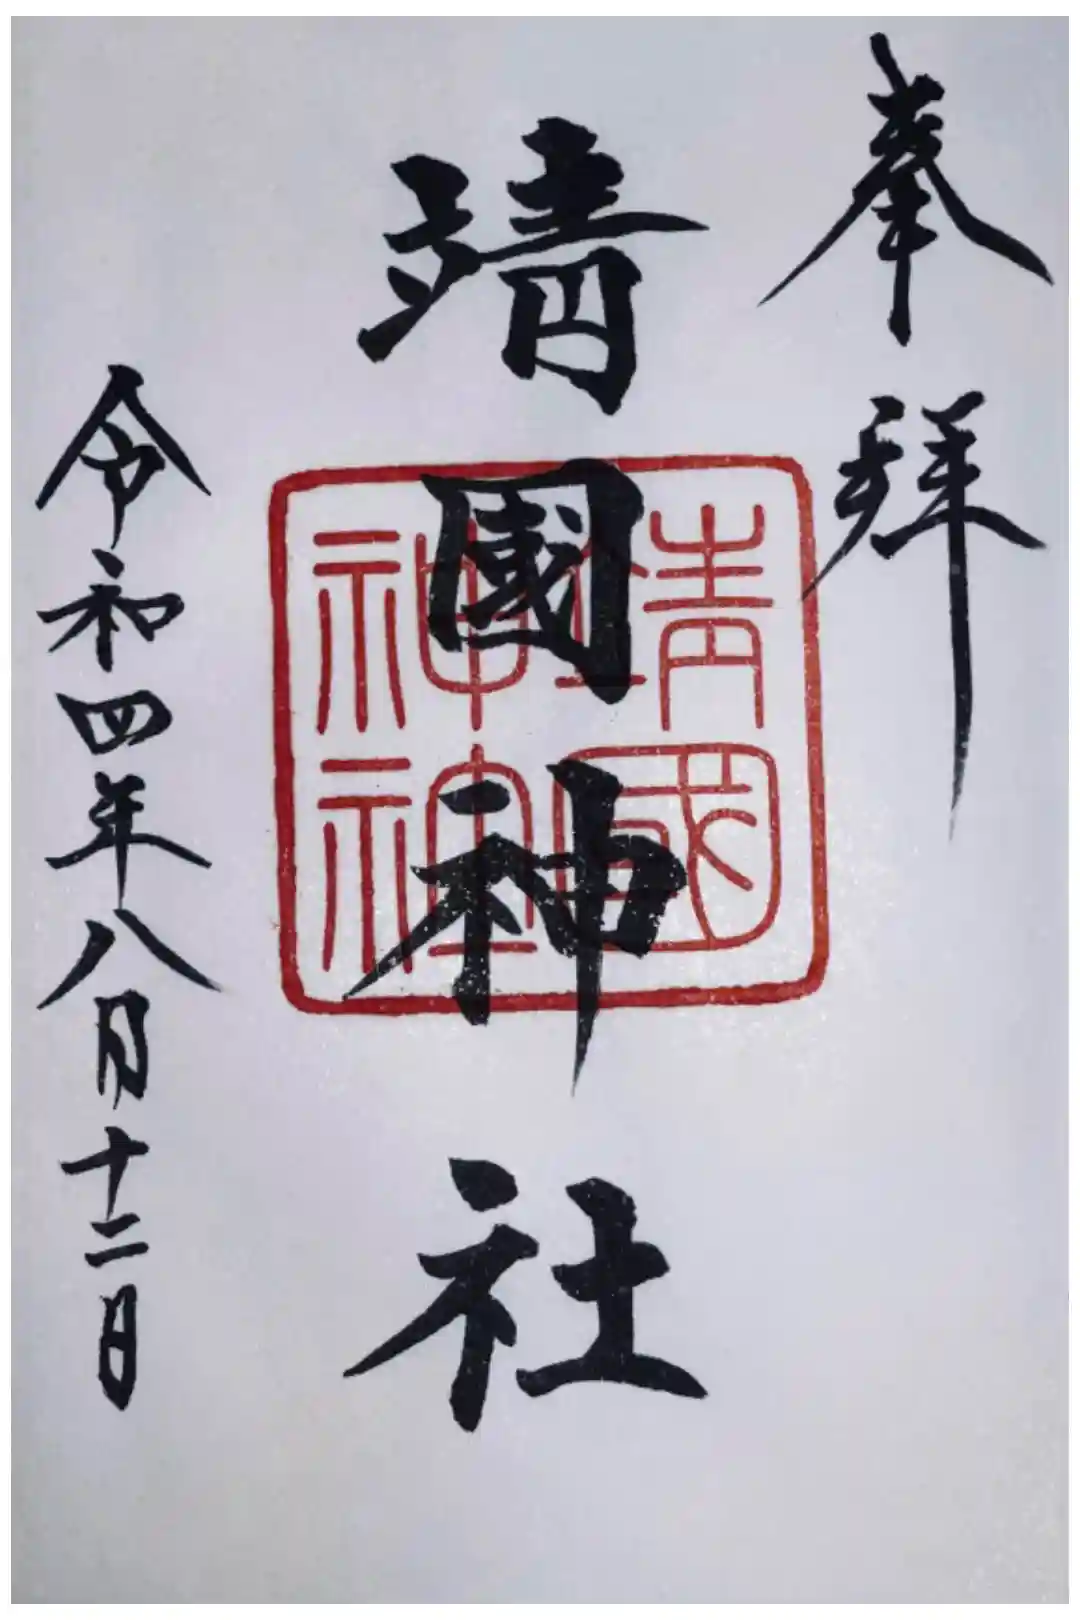 奉拜
靖國神社
靖國
神社
令和四年八月十二日